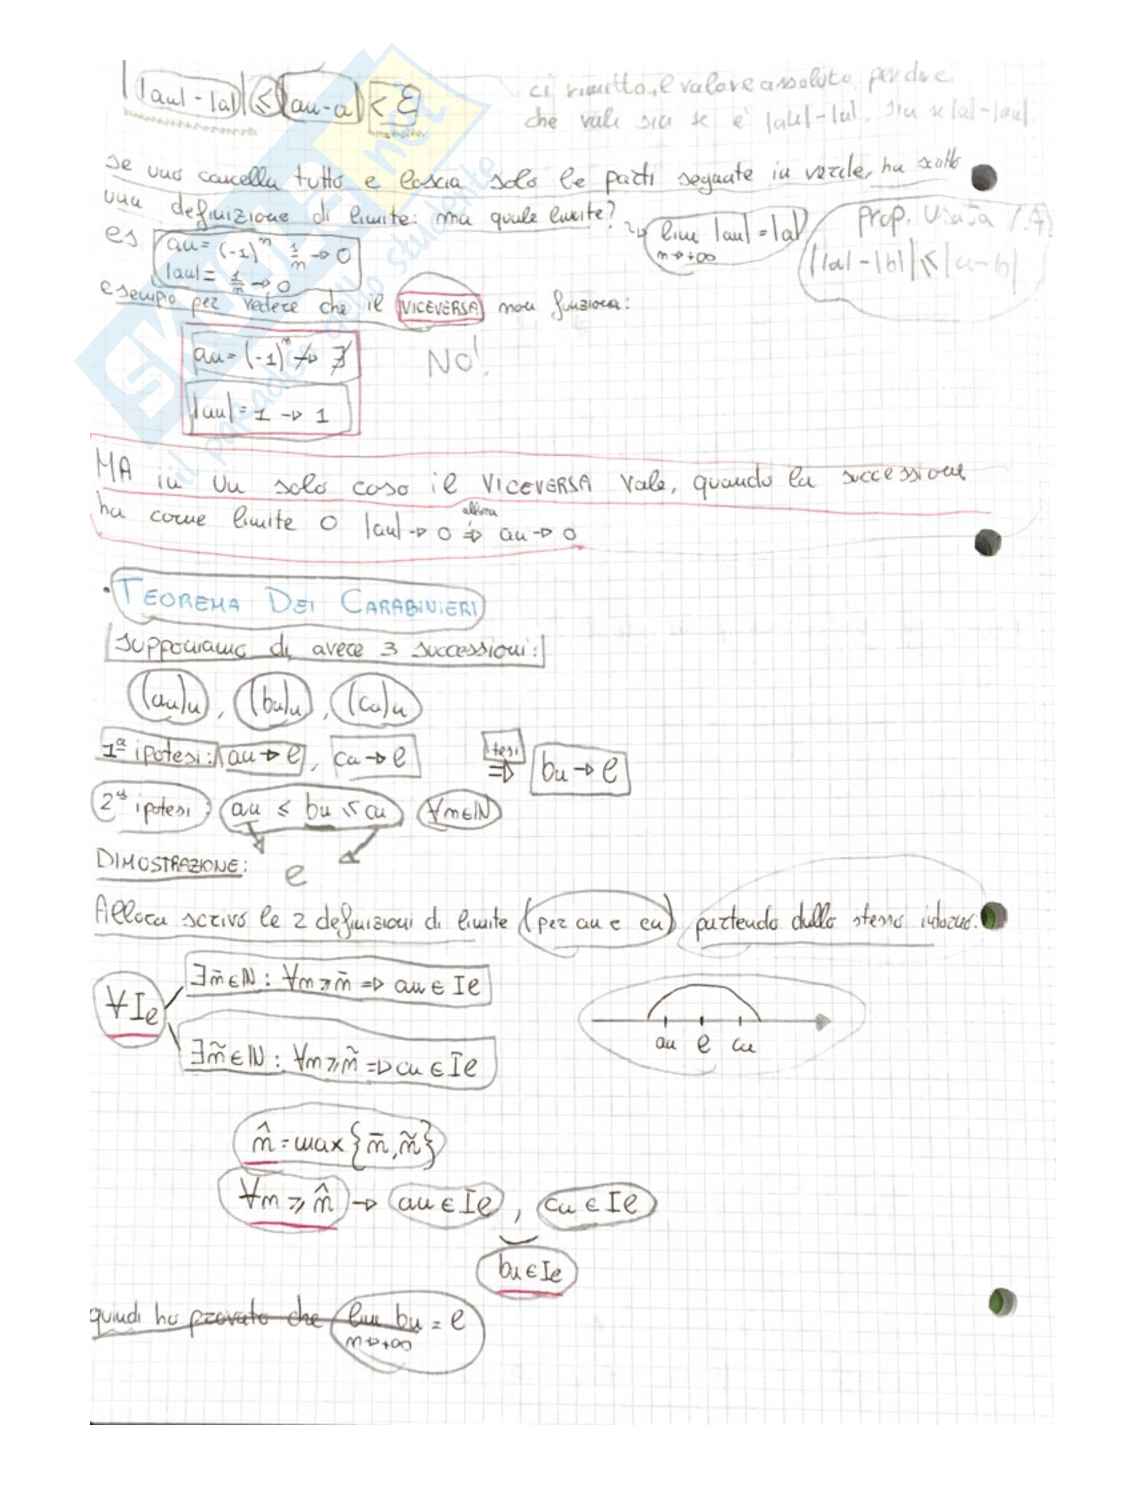 ||an|-|a|| ≤ |an-a| < ε
ci rimetto il valore assoluto per dire
che vale sia se è |an|-|a|, sia se |a|-|an|
se uno cancella tutto e lascia solo le parti segnate in verde, ha scritto
una definizione di limite: ma quale limite? → lim |an| = |a|
n→+∞
Prop. vista
||a|-|b|| ≤ |a-b|
es an = (-1)^n 1/n → 0
|an| = 1/n → 0
esempo per vedere che il VICEVERSA non funziona:
an = (-1)^n ↛ ∄
NO!
|an| = 1 → 1
MA in un solo caso il VICEVERSA vale, quando la successione
ha come limite 0 |an| → 0 ⇒ an → 0
allora
• TEOREMA DEI CARABINIERI
Supponiamo di avere 3 successioni:
(an)n, (bn)n, (cn)n
1ª ipotesi: an → l, cn → l
tesi
⇒ bn → l
2ª ipotesi: an ≤ bn ≤ cn ∀n∈N
l
DIMOSTRAZIONE:
Allora scrivo le 2 definizioni di limite (per an e cn) partendo dallo stesso intorno.
∀Il
∃n̄∈N : ∀n≥n̄ ⇒ an ∈ Il
∃ñ∈N : ∀n≥ñ ⇒ cn ∈ Il
an l cn
n̂ = max{n̄, ñ}
∀n ≥ n̂ → an ∈ Il, cn ∈ Il
bn ∈ Il
quindi ho provato che lim bn = l
n→+∞
SKUOLA.net
il paradiso dello studente